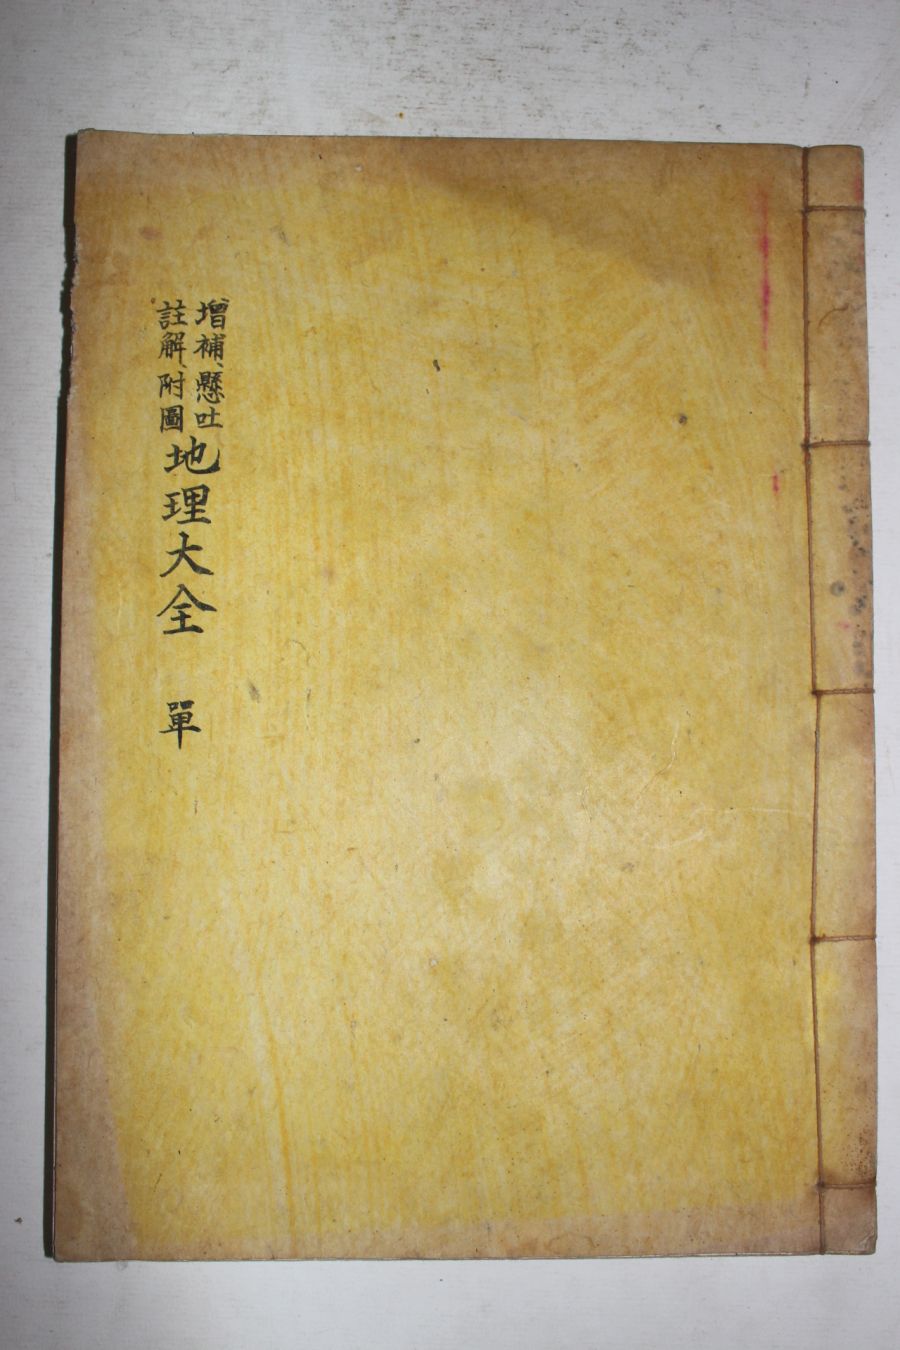 增補、懸吐
註解、附圖
地理大全 單